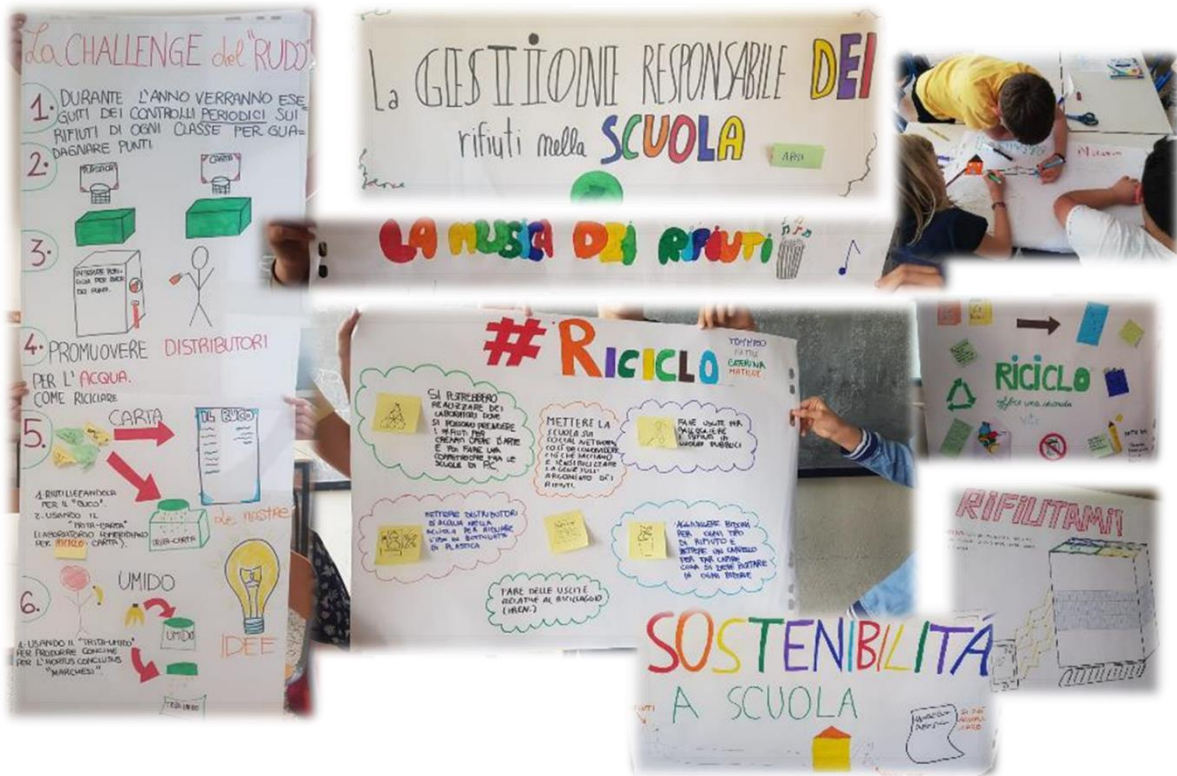 La CHALLENGE del "RUDO"
1. DURANTE L'ANNO VERRANNO ESE
GUITI DEI CONTROLLI PERIODICI SUI
RIFIUTI DI OGNI CLASSE PER GUA=
DAGNARE PUNTI
2.
CARTA
3.
4. PROMUOVERE DISTRIBUTORI
PER L'ACQUA.
COME RICICLARE
5. CARTA
1. RIUTILIZZANDOLA
PER IL "BUCO".
2. USANDO IL
"TRITA-CARTA"
(LABORATORIO POMERIDIANO
PER CARTA).
TRITA-CARTA
Le nostre
IDEE
6. UMIDO
1. USANDO IL "TRITA-UMIDO"
PER PRODURRE CONCIME
PER L'HORTUS CONCLUSUS
"MARCHESI".
UMIDO
TRITA UMIDO
La GESTIIONE RESPONSABILE DEI
rifiuti nella SCUOLA
LA MUSICA DEI RIFIUTI
#RICICLO
CATERINA
MATILDE
SI POTREBBERO
REALIZZARE DEI
LABORATORI DOVE
SI POSSONO PRENDERE
I RIFIUTI PER
CREARCI OPERE D'ARTE
E POI FARE UNA
COMPETIZIONE TRA LE
SCUOLE DI PC
METTERE LA
SCUOLA SUI
SOCIAL NETWORK
COSÌ DA CONDIVIDERE
CIÒ CHE FACCIAMO
E SENSIBILIZZARE
LA GENTE SULL'
ARGOMENTO DEI
RIFIUTI
FARE USCITE PER
RACCOGLIERE
I RIFIUTI IN
LUOGHI PUBBLICI
METTERE DISTRIBUTORI
D'ACQUA NELLA
SCUOLA PER RIDURRE
L'USO DI BOTTIGLIE
DI PLASTICA
AGGIUNGERE BIDONI
PER OGNI TIPO
DI RIFIUTO E
METTERE UN CARTELLO
PER FAR CAPIRE
COSA SI DEVE BUTTARE
IN OGNI BIDONE
FARE DELLE USCITE
RELATIVE AL RICICLAGGIO
(IREN.)
RICICLO
offre una seconda
vita
RIFIUTAMI!
SOSTENIBILITÁ
A SCUOLA